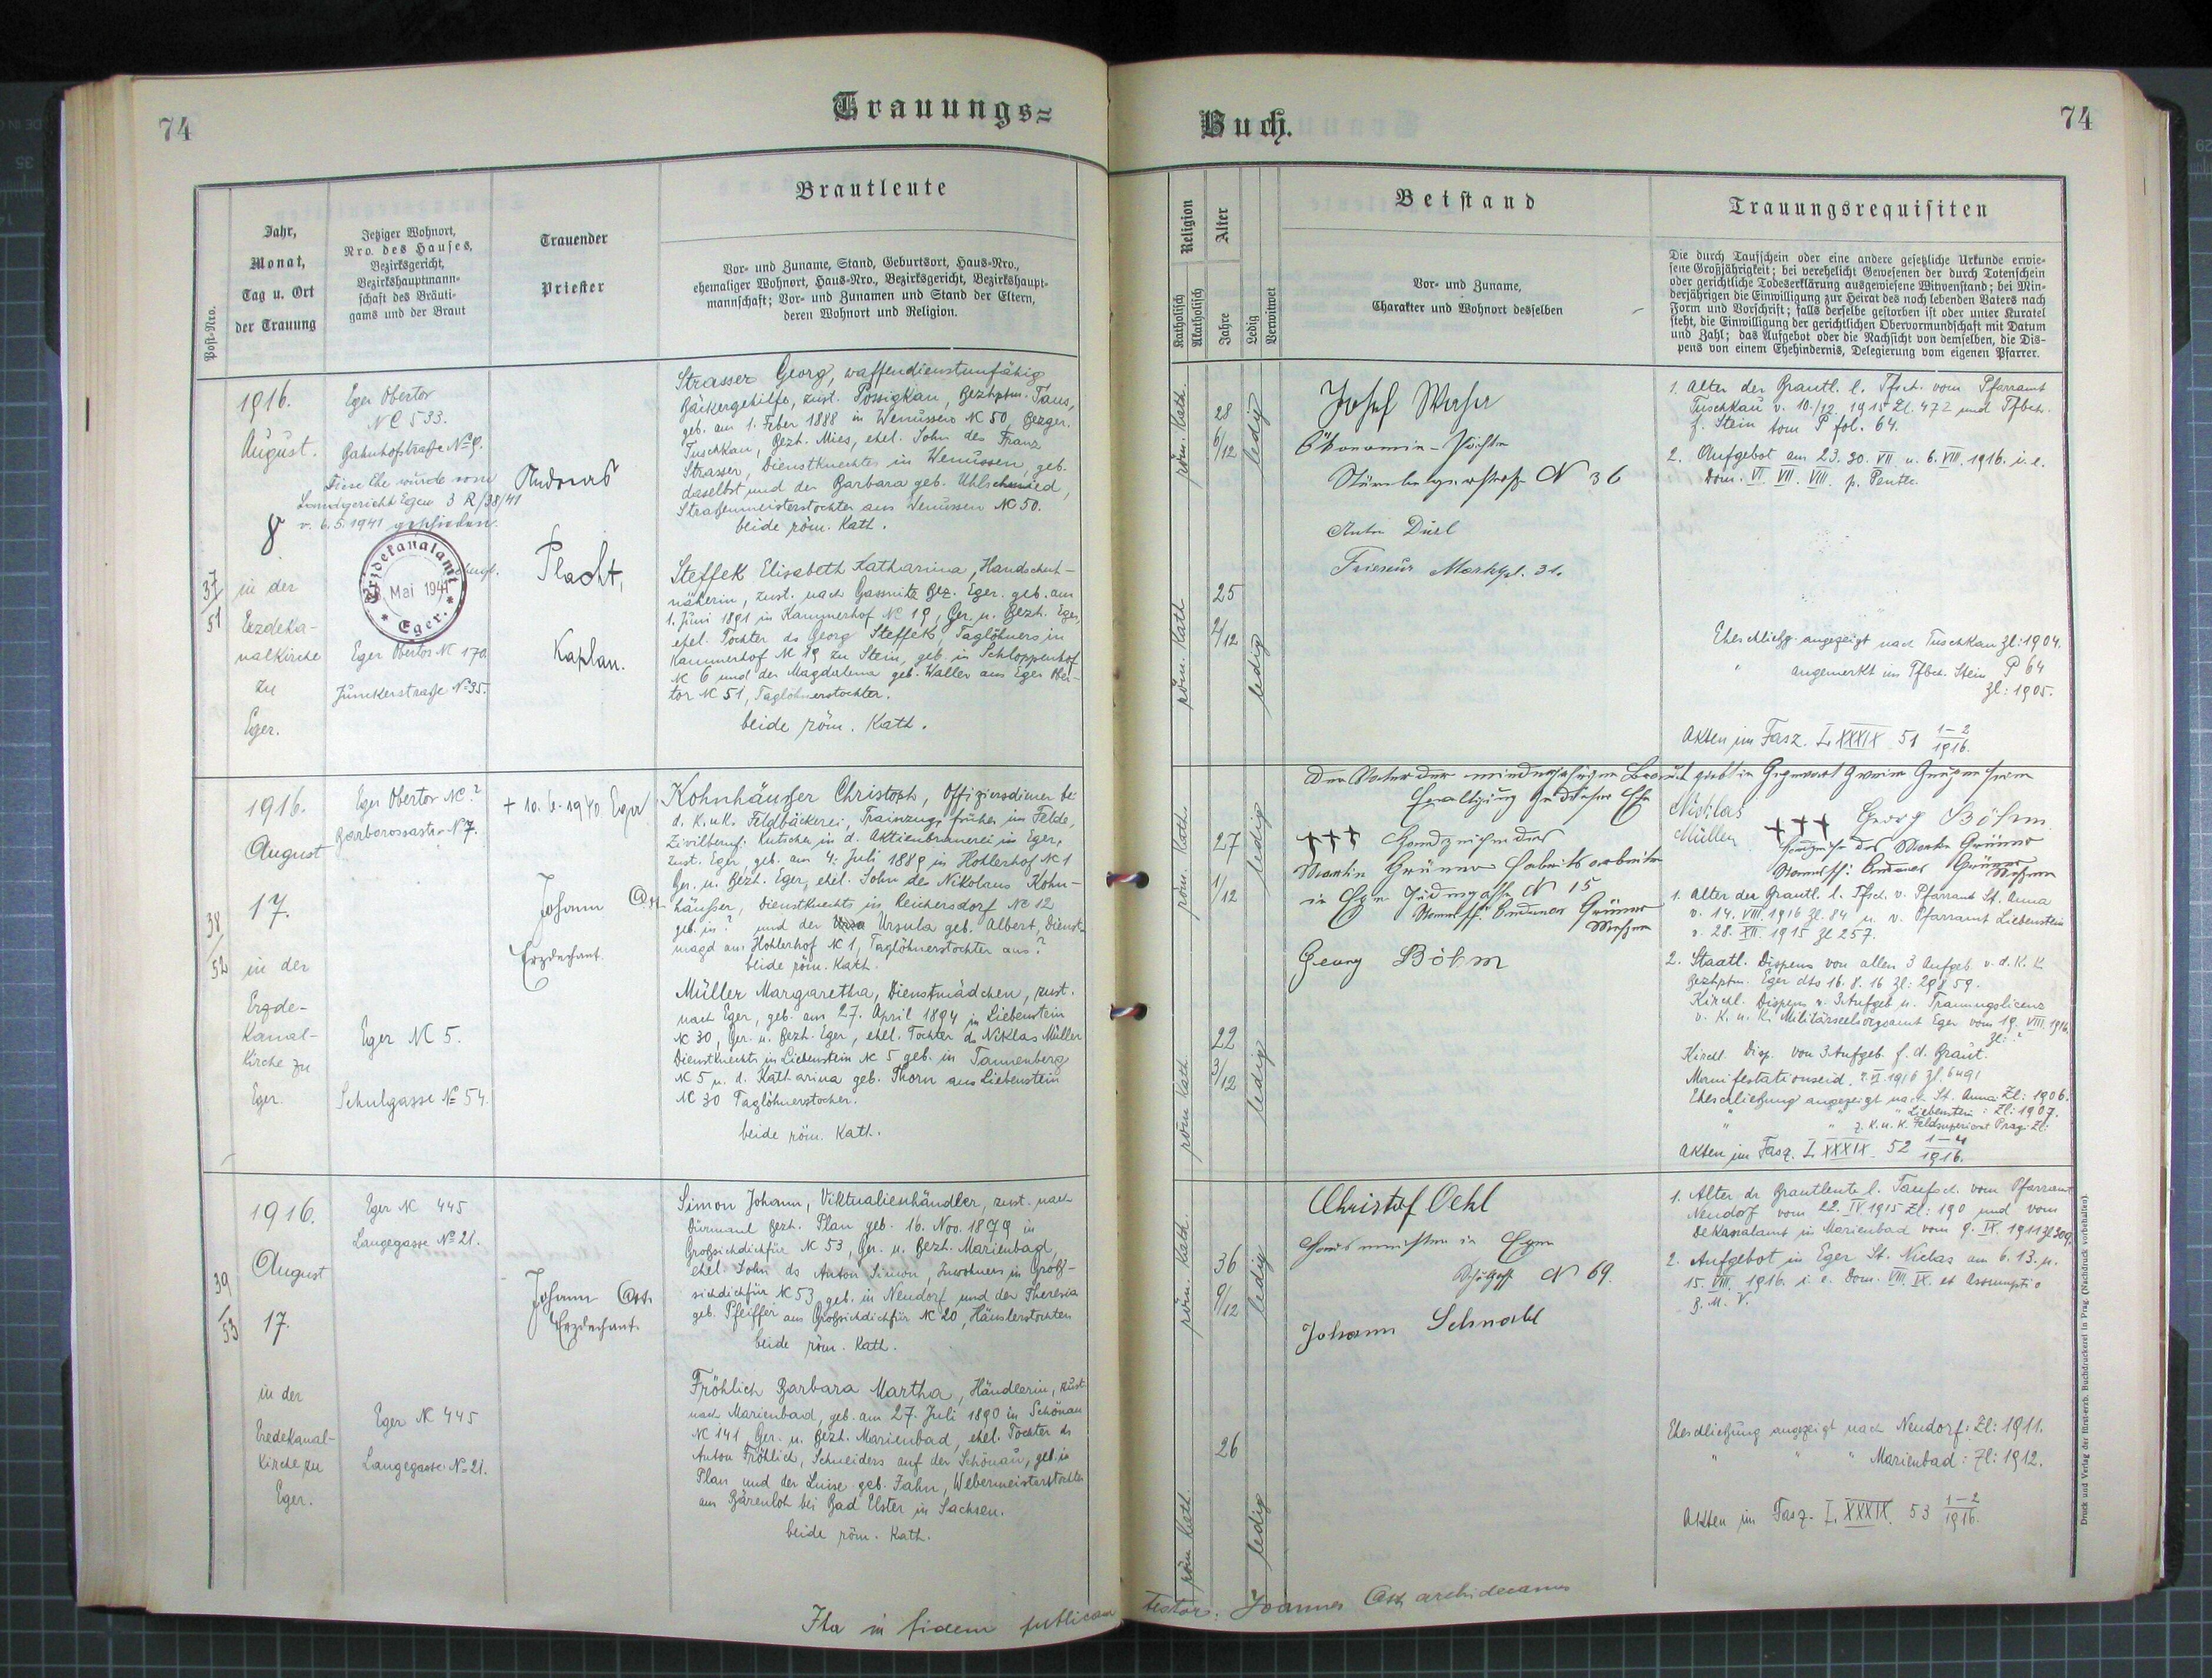 74
Trauungs=
Brautleute
Post-Nro.
Jahr,
Monat,
Tag u. Ort
der Trauung
Jetziger Wohnort,
Nro. des Hauses,
Bezirksgericht,
Bezirkshauptmann-
schaft des Bräuti-
gams und der Braut
Trauender
Priester
Vor- und Zuname, Stand, Geburtsort, Haus-Nro.,
ehemaliger Wohnort, Haus-Nro., Bezirksgericht, Bezirkshaupt-
mannschaft; Vor- und Zunamen und Stand der Eltern,
deren Wohnort und Religion.
37/51
1916.
August.
8
in der
Erzdeka-
nalkirche
zu
Eger.
Eger Obertor
NC 533.
Bahnhofstraße No 9.
Diese Ehe wurde vom
Landgericht Eger 3 R/38/41
v. 6.5.1941 geschieden.
Erzdekanalamt
Mai 1941
Eger.
Eger Obertor NC 170
Junkerstraße No 35.
Andreas
Placht,
Kaplan.
Strasser Georg, waffendienstunfähig
Bäckergehilfe, zust. Possigkau, Bezhptm. Taus,
geb. am 1. Feber 1888 in Wenussen NC 50, Bezger.
Tuschkau, Bezh. Mies, ehel. Sohn des Franz
Strasser, Dienstknechtes in Wenussen, geb.
daselbst und der Barbara geb. Uhlschmied,
Straßenmeisterstochter aus Wenussen NC 50.
beide röm. Kath.
Steffek Elisabeth Katharina, Handschuh-
näherin, zust. nach Gassnitz Bez. Eger, geb. am
1. Juni 1891 in Kammerhof NC 19, Ger. u. Bezh. Eger,
ehel. Tochter ds Georg Steffek, Taglöhners in
Kammerhof NC 19 zu Stein, geb. in Schloppenhof
NC 6 und der Magdalena geb. Waller aus Eger Ober-
tor NC 51, Taglöhnerstochter.
beide röm. Kath.
38/52
1916.
August
17.
in der
Erzde-
kanal-
kirche zu
Eger.
Eger Obertor NC ?
Barbarossastr. No 7.
Eger NC 5.
Schulgasse No 54.
+ 10.6.1940 Eger
Johann Ott
Erzdechant.
Kohnhäußer Christoph, Offiziersdiener bei
d. K. u. K. Feldbäckerei, Trainzug, früher im Felde,
Zivilberuf: Kutscher in d. Aktienbrauerei in Eger,
zust. Eger, geb. am 4. Juli 1889 in Hohlerhof NC 1
Ger. u. Bezh. Eger, ehel. Sohn des Nikolaus Kohn-
häußer, Dienstknechts in Reichersdorf NC 12
geb. in? und der Ursula geb. Albert, Dienst-
magd aus Hohlerhof NC 1, Taglöhnerstochter aus?
beide röm. Kath.
Müller Margaretha, Dienstmädchen, zust.
nach Eger, geb. am 27. April 1894 in Liebenstein
NC 30, Ger. u. Bezh. Eger, ehel. Tochter ds Niklas Müller
Dienstknechts in Liebenstein NC 5 geb. in Tannenberg
NC 5 u. d. Katharina geb. Thorn aus Liebenstein
NC 30 Taglöhnerstocher.
beide röm. Kath.
39/53
1916.
August
17.
in der
Erzdekanal-
kirche zu
Eger.
Eger NC 445
Langegasse No 21.
Eger NC 445
Langegasse No 21.
Johann Ott
Erzdechant.
Simon Johann, Viktualienhändler, zust. nach
Dürmaul Bezh. Plan geb. 16. Nov. 1879 in
Großsichdichfür NC 53, Ger. u. Bezh. Marienbad,
ehel. Sohn ds Anton Simon, Inwohners in Groß-
sichdichfür NC 53, geb. in Neudorf und der Theresia
geb. Pfeiffer aus Großsichdichfür NC 20, Häuslerstochter
beide röm. Kath.
Fröhlich Barbara Martha, Händlerin, zust.
nach Marienbad, geb. am 27. Juli 1890 in Schönau
NC 141, Ger. u. Bezh. Marienbad, ehel. Tochter ds
Anton Fröhlich, Schneiders auf der Schönau, geb. in
Plan und der Luise geb. Jahn, Webermeisterstochter
aus Bärenloh bei Bad Elster in Sachsen.
beide röm. Kath.
Ita in fidem publicam
Buch.
74
Religion
Katholisch
Akatholisch
Alter
Jahre
Ledig
Verwitwet
Beistand
Vor- und Zuname,
Charakter und Wohnort desselben
Trauungsrequisiten
Die durch Taufschein oder eine andere gesetzliche Urkunde erwie-
sene Großjährigkeit; bei verehelicht Gewesenen der durch Totenschein
oder gerichtliche Todeserklärung ausgewiesene Witwenstand; bei Min-
derjährigen die Einwilligung zur Heirat des noch lebenden Vaters nach
Form und Vorschrift; falls derselbe gestorben ist oder unter Kuratel
steht, die Einwilligung der gerichtlichen Obervormundschaft mit Datum
und Zahl; das Aufgebot oder die Nachsicht von demselben, die Dis-
pens von einem Ehehindernis, Delegierung vom eigenen Pfarrer.
röm. Kath.
28
6/12
ledig
röm. Kath.
25
2/12
ledig
Josef
Ökonomie-Pächter
N 36
Anton Dürl
Friseur Marktpl. 31.
1. Alter der Brautl. l. Tfsch. vom Pfarramt
Tuschkau v. 10./12. 1915 Zl. 472 und Tfbch.
f. Stein tom P fol. 64.
2. Aufgebot am 23. 30. VII. u. 6. VIII. 1916. i. e.
Dom. VI. VII. VIII. p. Pentec.
Eheschließg. angezeigt nach Tuschkau Zl: 1904.
" angemerkt im Tfbch. Stein P 64
Zl: 1905.
Akten im Fasz. I. XXXIX 51 1-2/1916.
röm. Kath.
27
1/12
ledig
röm Kath.
22
3/12
ledig
Der Vater der minderjährigen Braut giebt in Gegenwart zweier Zeugen seine
Einwilligung zu dieser Ehe
+++ Handzeichen des
Martin Grüner Fabriksarbeiter
in Eger Judengasse N 15
Namensf: Andreas Grüner
Messner
Georg Böhm
Niklas
Müller
+++
Georg Böhm
Handzeichen des Martin Grüner
Namensf: Andreas Grüner
Messner
1. Alter der Brautl. l. Tfsch. v. Pfarramt St. Anna
v. 14. VIII. 1916 Zl. 84 u. v. Pfarramt Liebenstein
v. 28. XII. 1915 Zl 257.
2. Staatl. Dispens von allen 3 Aufgeb. v. d. K. K.
Bezhptm. Eger dto 16. 8. 16 Zl: 29859.
Kirchl. Dispens v. 3 Aufgeb u. Trauungslicenz
v. K. u. K. Militärseelsorgeamt Eger vom 19. VIII. 1916.
Zl: ?
Kirchl. Disp. von 3 Aufgeb. f. d. Braut.
Manifestationseid. ?. VI. 1916 Zl. 6491
Eheschließung angezeigt nach St. Anna: Zl: 1906.
" " Liebenstein: Zl: 1907.
" " z. K. u. K. Feldsuperiorat Prag: Zl:
Akten im Fasz. I. XXXIX. 52 1-4/1916.
röm. Kath.
36
9/12
ledig
röm Kath.
26
ledig
Christof Oehl
Hausmeister in Eger
N 69.
Johann Schnabl
1. Alter dr Brautleute l. Taufsch. vom Pfarramt
Neudorf vom 22. IV. 1915 Zl: 190 und vom
Dekanalamt in Marienbad vom 9. IX. 1911 Zl 309.
2. Aufgebot in Eger St. Niclas am 6. 13. u.
15. VIII. 1916. i. e. Dom. VIII. IX. et Assumptio
B. M. V.
Eheschließung angezeigt nach Neudorf: Zl: 1911.
" " " Marienbad: Zl: 1912.
Akten im Fasz. I. XXXIX. 53 1-2/1916.
testor: Joannes Ott archidecanus
Druck und Verlag der fürst-erzb. Buchdruckerei in Prag. (Nachdruck vorbehalten)